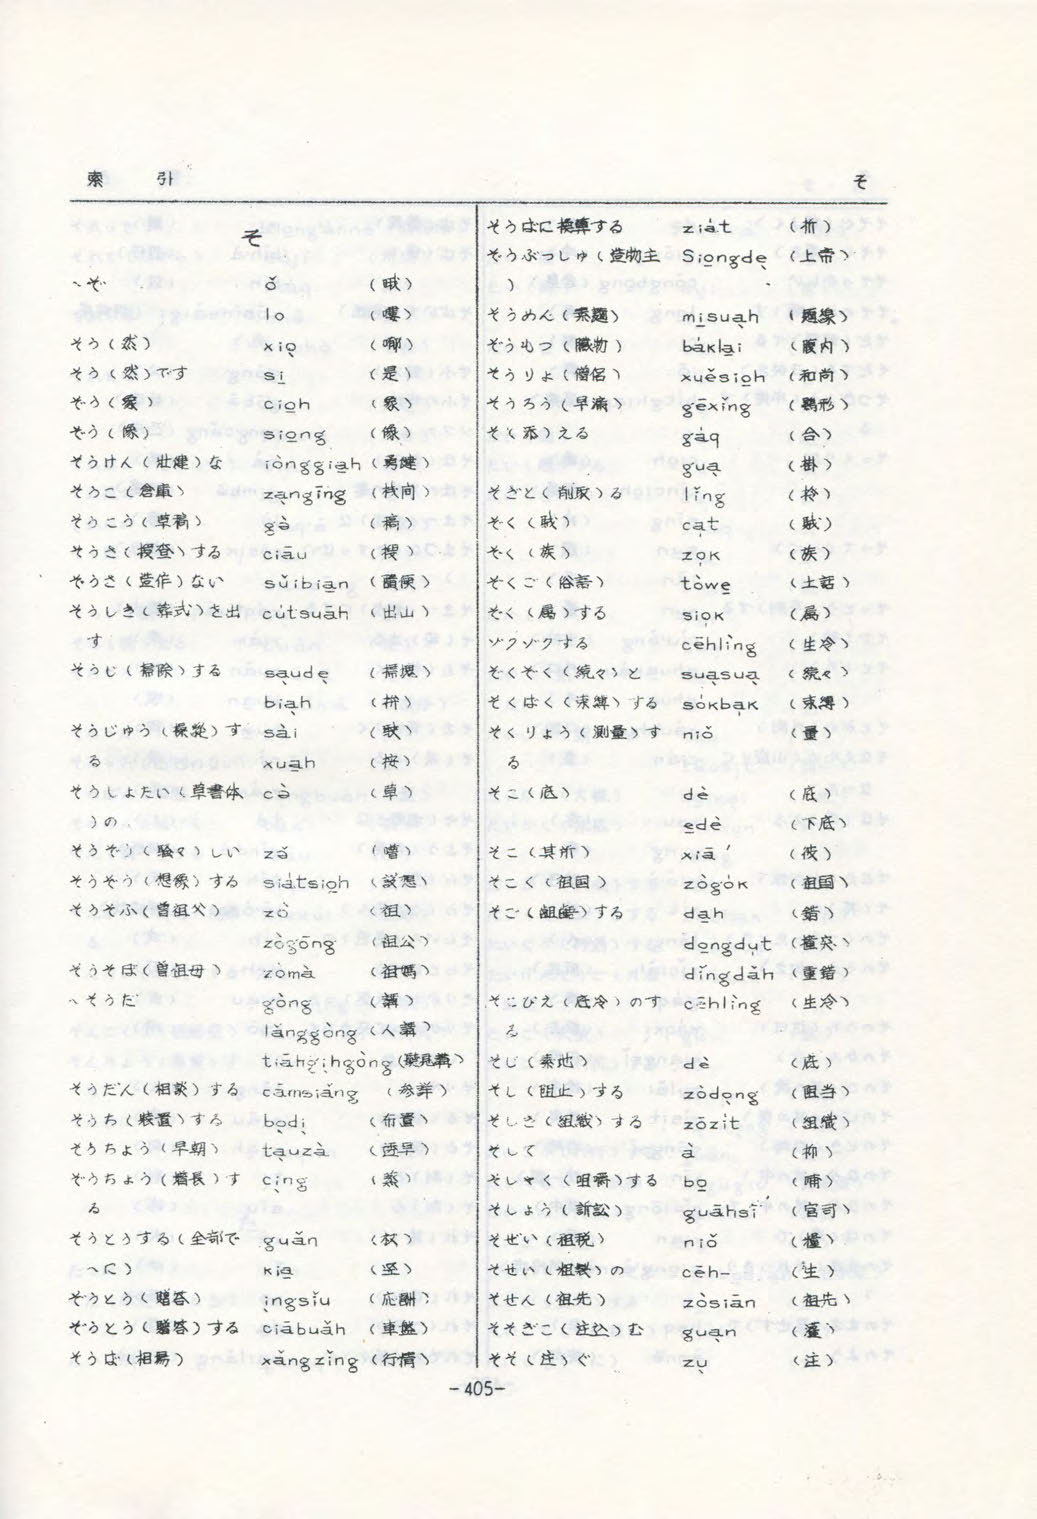 索 引 そ
そ
〜ぞ ǒ (哦)
lo (嘍)
そう(然) xio̱ (唧)
そう(然)です si̱ (是)
ぞう(象) cio̱h (象)
ぞう(像) sio̱ng (像)
そうけん(壮健)な iònggia̱h (勇健)
そうこ(倉庫) za̱ngīng (桟間)
そうこう(草稿) gà (稿)
そうさく(捜査)する ciāu (搜)
そうさ(造作)ない sǔibia̱n (隨便)
そうしき(葬式)を出 cútsuāh (出山)
す
そうじ(掃除)する sa̱ude̱ (掃塊)
bia̱h (拚)
そうじゅう(操縦)す sài (駛)
る xua̱h (按)
そうしょたい(草書体 cà (草)
)の
そうぞう(騒々)しい zǎ (嘈)
そうぞう(想像)する siátsio̱h (設想)
そうそふ(曽祖父) zò (祖)
zògōng (祖公)
そうそぼ(曽祖母) zòmà (祖媽)
〜そうだ gòng (講)
lǎnggòng (人講)
tiāhgi̱hgòng (聽見講)
そうだん(相談)する cāmsiǎng (参詳)
そうち(装置)する bo̱di̱ (布置)
そうちょう(早朝) ta̱uzà (透早)
ぞうちょう(増長)す ci̱ng (蒸)
る
そうとうする(全部で guǎn (杖)
〜に) kia̱ (竪)
ぞうとう(贈答) i̱ngsǐu (応酬)
ぞうとう(贈答)する ciābuǎh (車盤)
そうば(相場) xǎngzǐng (行情)
そうばに換算する ziát (折)
ぞうぶつしゅ(造物主 Sio̱ngde̱ (上帝)
)
そうめん(素麺) mi̱sua̱h (麺線)
ぞうもつ(臓物) bákla̱i (腹内)
そうりょ(僧侶) xuěsio̱h (和尚)
そうろう(早漏) gēxǐng (鶏形)
そ(添)える gáq (合)
gua̱ (掛)
そぎと(削取)る lǐng (拎)
ぞく(賊) ca̱t (賊)
ぞく(族) zo̱k (族)
ぞくご(俗語) tòwe̱ (土話)
ぞく(属)する sio̱k (属)
ゾクゾクする cēhlìng (生冷)
ぞくぞく(続々)と sua̱sua̱ (続々)
そくばく(束縛)する sókba̱k (束縛)
そくりょう(測量)す niǒ (量)
る
そこ(底) dè (底)
e̱dè (下底)
そこ(其所) xiā (彼)
そこく(祖国) zògók (祖国)
そご(齟齬)する da̱h (錯)
do̱ngdu̱t (撞突)
dǐngdǎh (重錯)
そこびえ(底冷)のす cēhlìng (生冷)
る
そじ(素地) dè (底)
そし(阻止)する zòdo̱ng (阻当)
そしき(組織)する zōzít (組織)
そして à (抑)
そしゃく(咀嚼)する bo̱ (哺)
そしょう(訴訟) guāhsī (官司)
そぜい(租税) niǒ (糧)
そせい(粗製)の cēh- (生)
そせん(祖先) zòsiān (祖先)
そそぎこ(注込)む gua̱n (灌)
そそ(注)ぐ zu̱ (注)
-405-